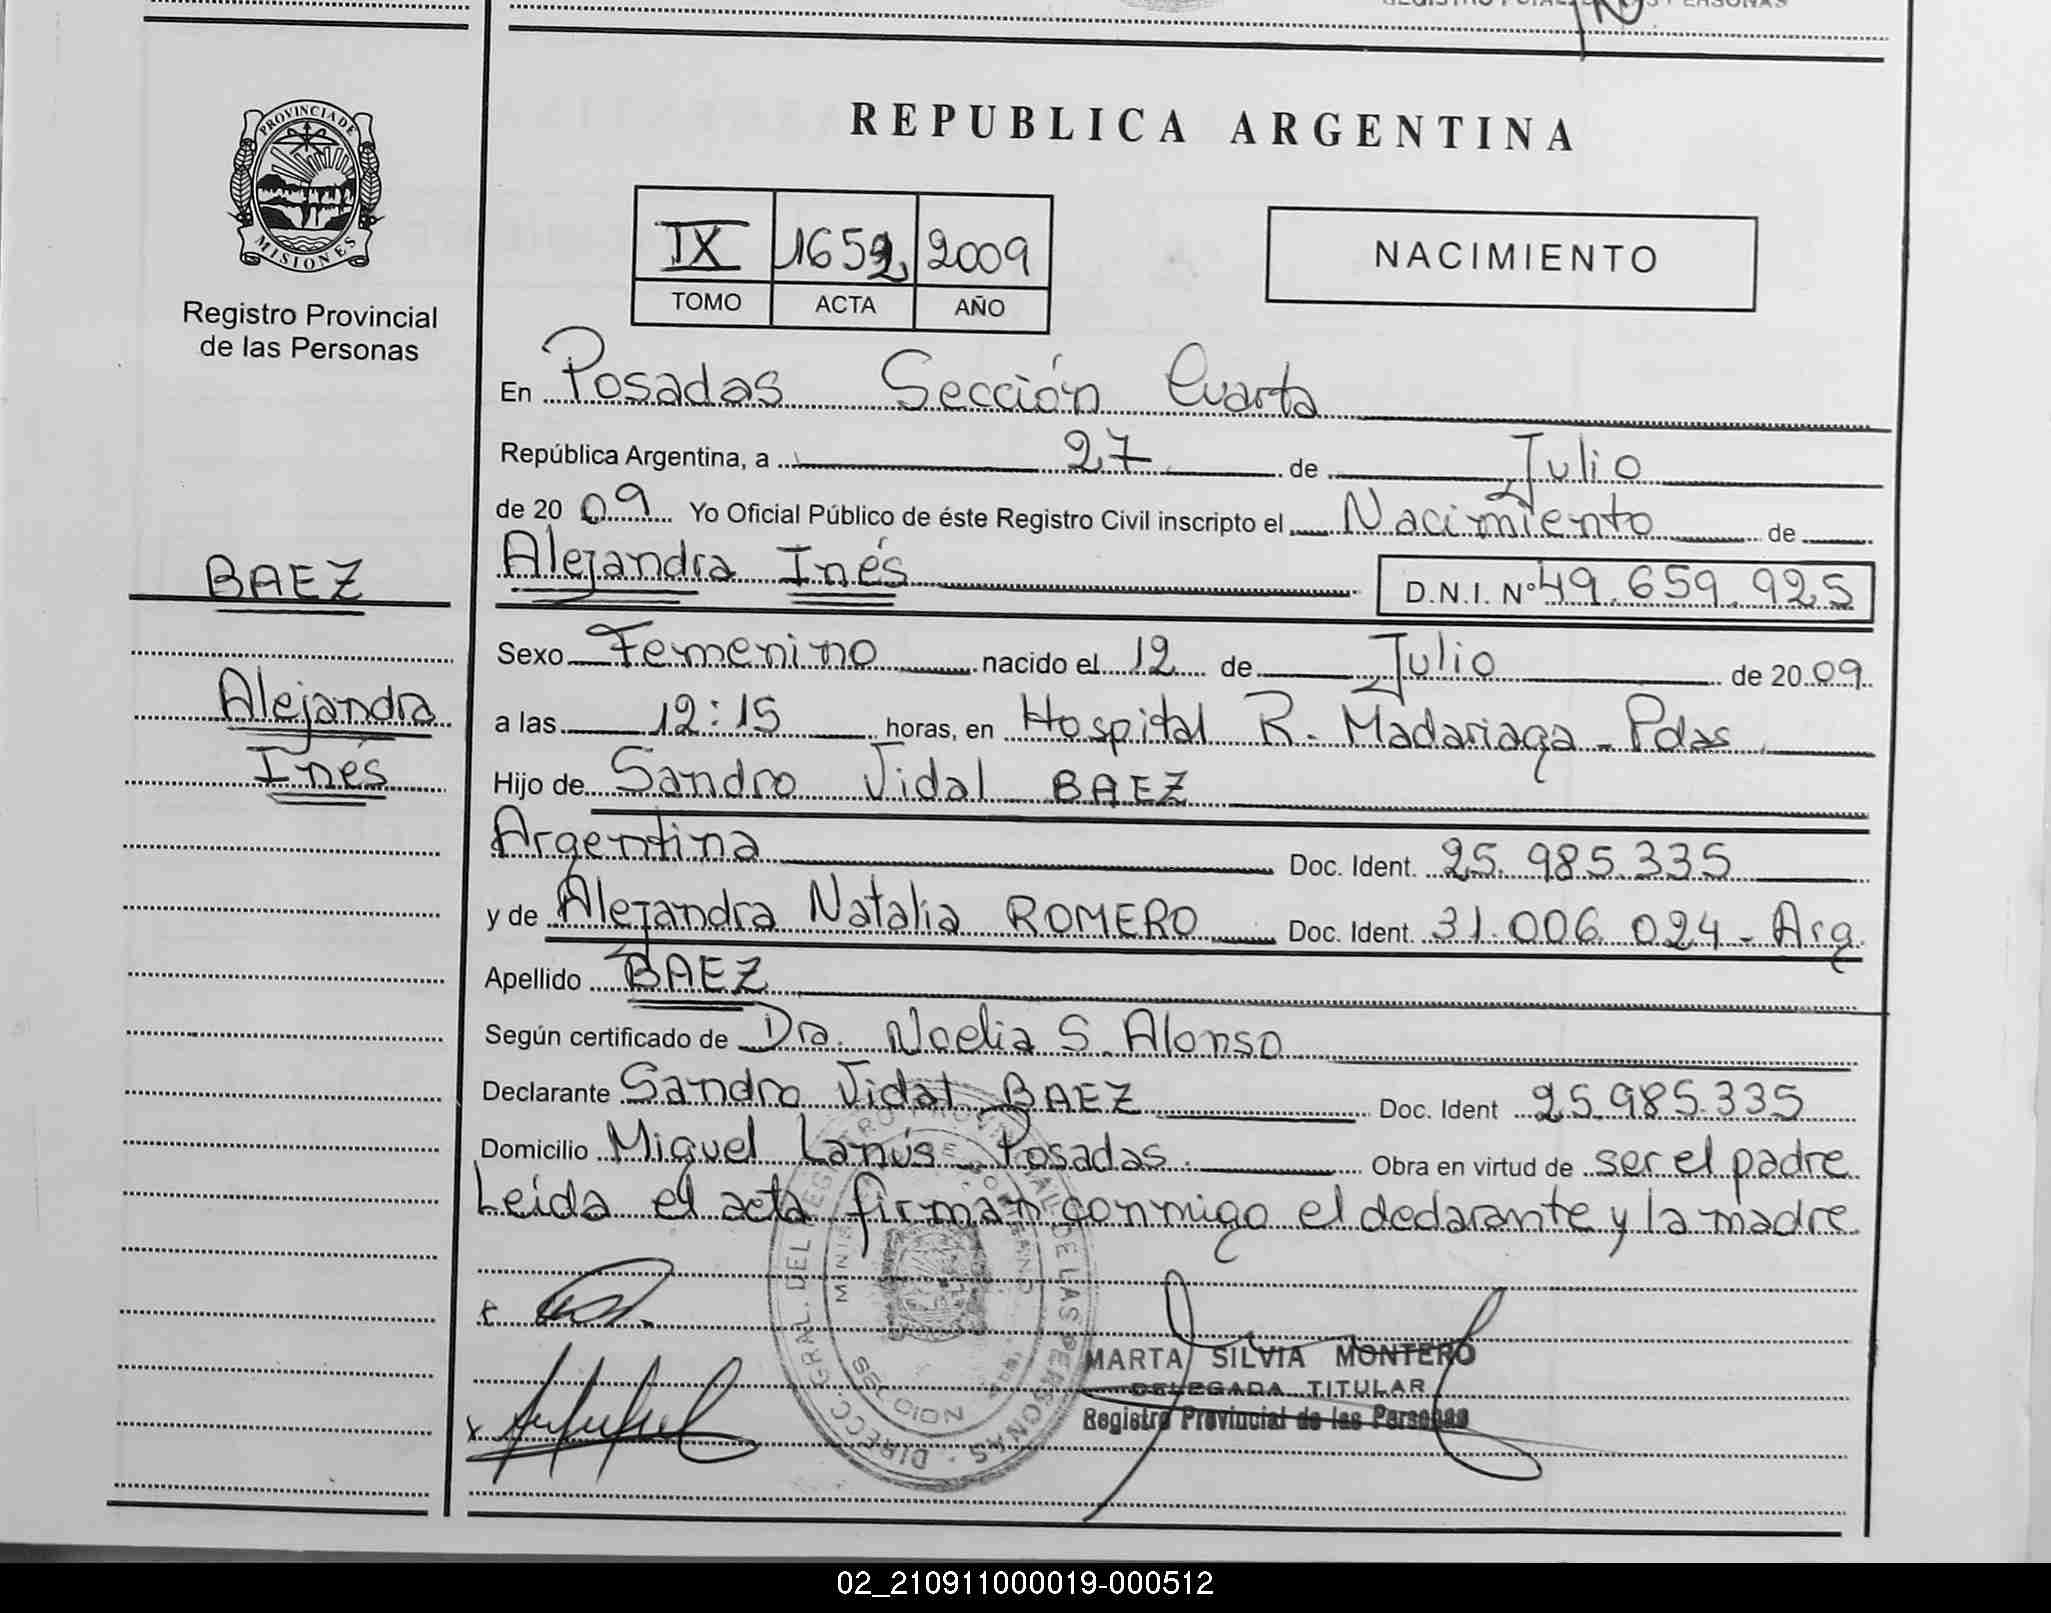 REPUBLICA ARGENTINA
PROVINCIA DE
MISIONES
Registro Provincial
de las Personas
IX 1652 2009
TOMO ACTA AÑO
NACIMIENTO
BAEZ
Alejandra
Inés
En Posadas Sección Cuarta
República Argentina, a 27 de Julio
de 2009 Yo Oficial Público de éste Registro Civil inscripto el Nacimiento de
Alejandra Inés D.N.I. Nº 49.659.925
Sexo Femenino nacido el 12 de Julio de 2009
a las 12:15 horas, en Hospital R. Madariaga - Pdas
Hijo de Sandro Vidal BAEZ
Argentina Doc. Ident. 25.985.335
y de Alejandra Natalia ROMERO Doc. Ident. 31.006.024 - Arg.
Apellido BAEZ
Según certificado de Dra. Noelia S. Alonso
Declarante Sandro Vidal BAEZ Doc. Ident 25.985.335
Domicilio Miguel Lanús - Posadas. Obra en virtud de ser el padre
Leída el acta firman conmigo el declarante y la madre
MARTA SILVIA MONTERO
DELEGADA TITULAR
Registro Provincial de las Personas
02_210911000019-000512